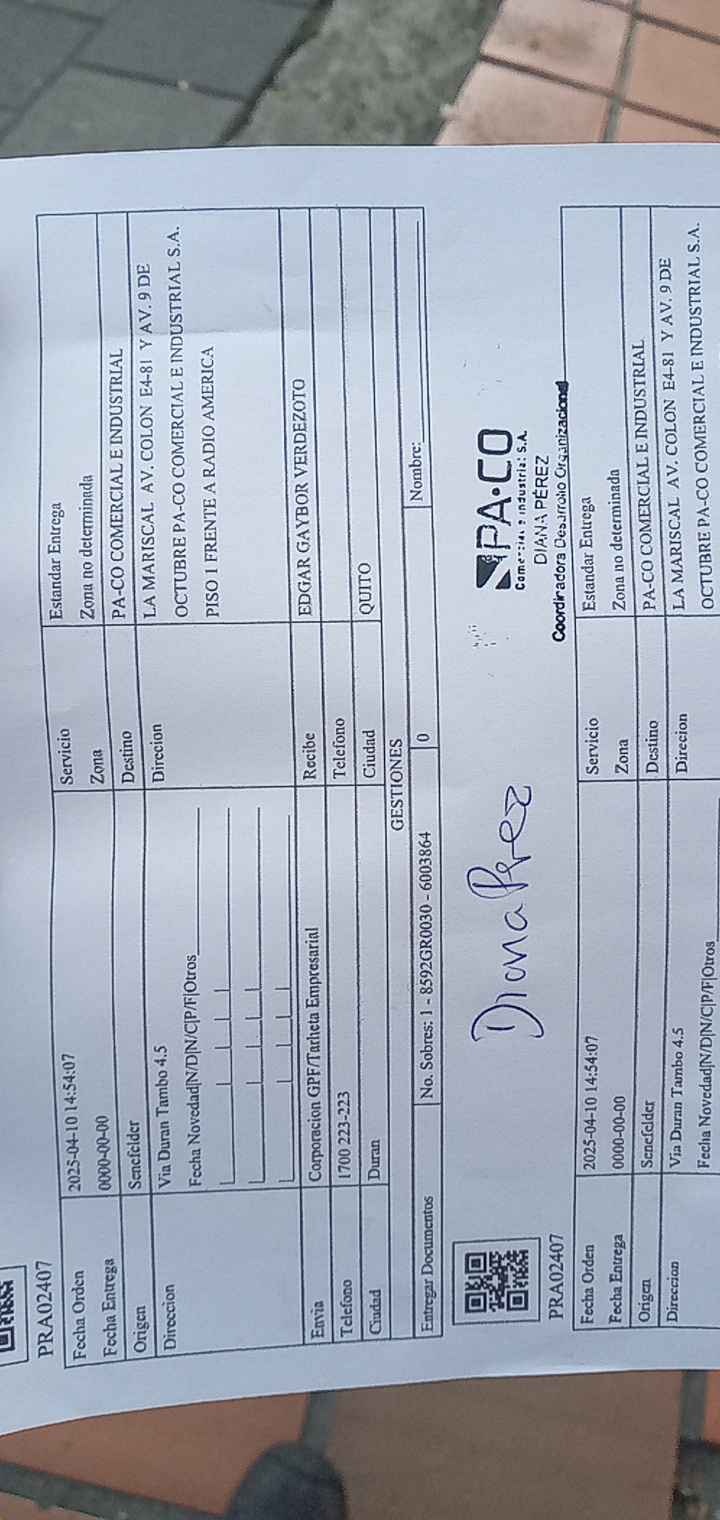 PRA02407
Fecha Orden 2025-04-10 14:54:07 Servicio Estandar Entrega
Fecha Entrega 0000-00-00 Zona Zona no determinada
Origen Senefelder Destino PA-CO COMERCIAL E INDUSTRIAL
Direccion Via Duran Tambo 4.5 Direcion LA MARISCAL AV. COLON E4-81 Y AV. 9 DE
Fecha Novedad|N/D|N/C|P/F|Otros OCTUBRE PA-CO COMERCIAL E INDUSTRIAL S.A.
PISO 1 FRENTE A RADIO AMERICA
Envia Corporacion GPF/Tarheta Empresarial Recibe EDGAR GAYBOR VERDEZOTO
Telefono 1700 223-223 Telefono
Ciudad Duran Ciudad QUITO
GESTIONES
Entregar Documentos No. Sobres: 1 - 8592GR0030 - 6003864 0 Nombre:
Diana Pérez
PA·CO
Comercial e industrial S.A.
DIANA PÉREZ
Coordinadora Desarrollo Organizacional
PRA02407
Fecha Orden 2025-04-10 14:54:07 Servicio Estandar Entrega
Fecha Entrega 0000-00-00 Zona Zona no determinada
Origen Senefelder Destino PA-CO COMERCIAL E INDUSTRIAL
Direccion Via Duran Tambo 4.5 Direcion LA MARISCAL AV. COLON E4-81 Y AV. 9 DE
Fecha Novedad|N/D|N/C|P/F|Otros OCTUBRE PA-CO COMERCIAL E INDUSTRIAL S.A.